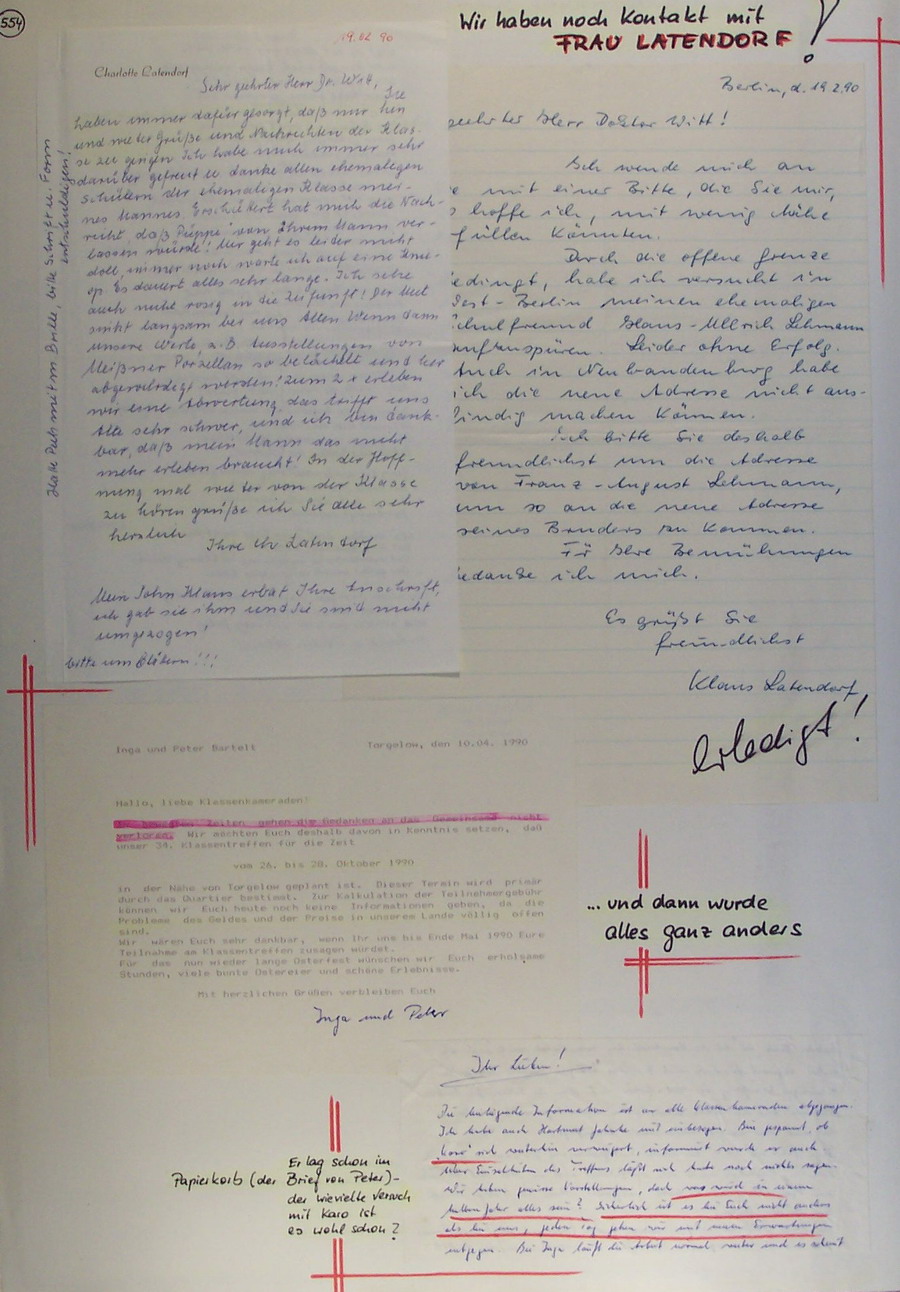 554
Wir haben noch Kontakt mit
FRAU LATENDORF !
19.02.90
Charlotte Latendorf
Sehr geehrter Herr Dr. Witt,
Sie
haben immer dafür gesorgt, daß mir hin
und wieter Grüße und Nachrichten der Klas-
se zu gingen Ich habe mich immer sehr
darüber gefreut u danke allen ehemaligen
Schülern der ehemaligen Klasse mei-
nes Mannes Erschüttert hat mich die Nach-
richt, daß Puppe von Ihrem Mann ver-
lassen wurde! Mir geht es leider nicht
doll, immer noch warte ich auf eine Knie-
op Es dauert alles sehr lange. Ich sehe
auch nicht rosig in die Zukunft! Der Mut
sinkt langsam bei uns Alten Wenn dann
unsere Werte, z.B. Ausstellungen von
Meißner Porzellan so belächelt und
abgewürdigt werden! zum 2 x erleben
wir eine Abwertung, das trifft uns
Alte sehr schwer, und ich bin dank-
bar, daß mein Mann das nicht
mehr erleben braucht! In der Hoff-
nung mal wieter von der Klasse
zu hören grüße ich Sie alle sehr
herzlich
Ihre Ch Latendorf
Mein Sohn Klaus erbat Ihre Anschrift,
ich gab sie ihm und Sie sind nicht
umgezogen!
bitte um Blättern!!!
bitte Schrift u. Form
entschuldigen!
Berlin, d. 19.2.90
geehrter Herr Doktor Witt!
Ich wende mich an
mit einer Bitte, die Sie mir,
hoffe ich, mit wenig Mühe
füllen könnten.
Durch die offene Grenze
bedingt, habe ich versucht in
West-Berlin meinen ehemaligen
Schulfreund Klaus-Ullrich Lehmann
aufzuspüren. Leider ohne Erfolg.
Auch in Neubrandenburg habe
ich die neue Adresse nicht aus-
findig machen können.
Ich bitte Sie deshalb
freundlichst um die Adresse
von Franz-August Lehmann,
um so an die neue Adresse
seines Bruders zu kommen.
Für Ihre Bemühungen
bedanke ich mich.
Es grüßt Sie
freundlichst
Klaus Latendorf
Erledigt!
Inga und Peter Bartelt Torgelow, den 10.04. 1990
Hallo, liebe Klassenkameraden!
Zeiten gehen die Gedanken an das Gemeinsame nicht
verloren. Wir möchten Euch deshalb davon in Kenntnis setzen, daß
unser 34. Klassentreffen für die Zeit
vom 26. bis 28. Oktober 1990
in der Nähe von Torgelow geplant ist. Dieser Termin wird primär
durch das Quartier bestimmt. Zur Kalkulation der Teilnehmergebühr
können wir Euch heute noch keine Informationen geben, da die
Probleme des Geldes und der Preise in unserem Lande völlig offen
sind.
Wir wären Euch sehr dankbar, wenn Ihr uns bis Ende Mai 1990 Eure
Teilnahme am Klassentreffen zusagen würdet.
Für das nun wieder lange Osterfest wünschen wir Euch erholsame
Stunden, viele bunte Ostereier und schöne Erlebnisse.
Mit herzlichen Grüßen verbleiben Euch
Inga und Peter
... und dann wurde
alles ganz anders
Ihr Lieben!
Die beiliegende Information ist an alle Klassenkameraden abgegangen.
Ich habe auch Hartmut Jahnke mit einbezogen. Bin gespannt, ob
"Karo" sich weiterhin verweigert, informiert wurde er auch.
Über Einzelheiten des Treffens läßt sich heute noch nichts sagen.
Wir haben gewisse Vorstellungen, doch was wird in einem
halben Jahr alles sein? Sicherlich ist es bei Euch nicht anders
als bei uns, jeden Tag gehen wir mit neuen Erwartungen
entgegen. Bei Inga läuft die Arbeit normal weiter und es scheint
Er lag schon im
Papierkorb (der Brief von Peter) -
der wievielte Versuch
mit Karo ist
es wohl schon?